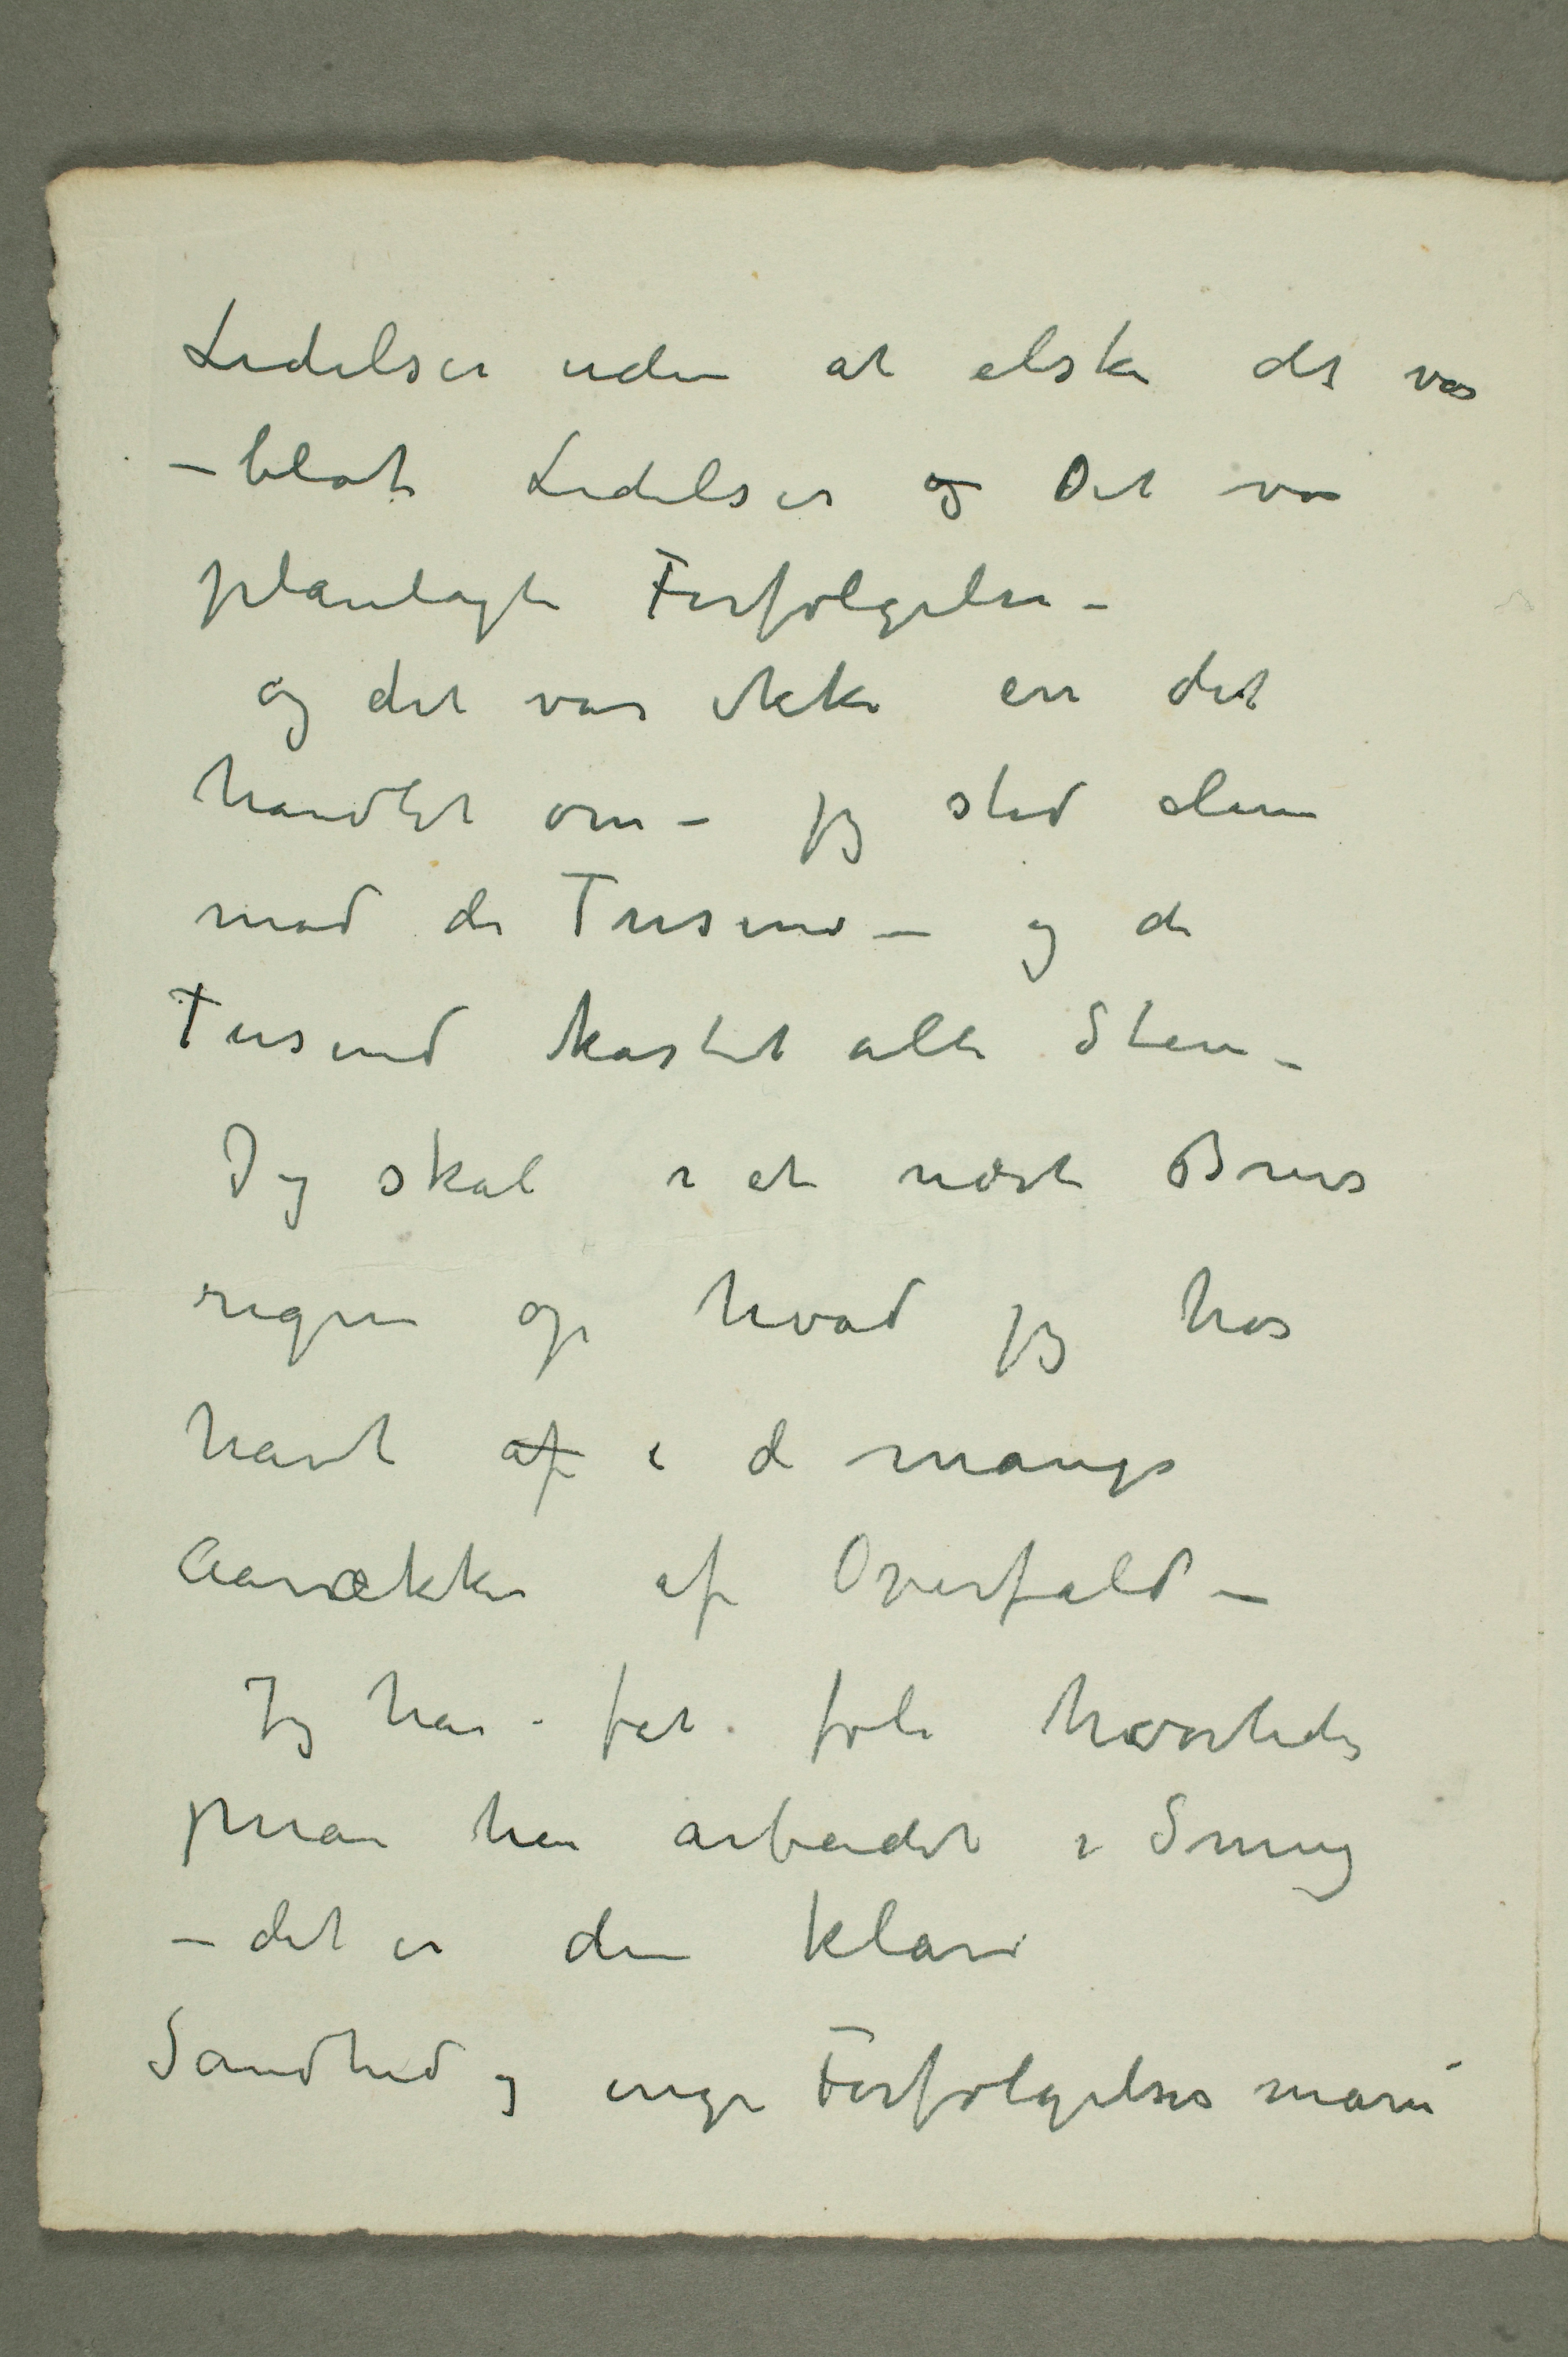 Lidelser uden at elske det var
– blot Lidelser og Det var
planlagte Forfølgelser –
og det var ikke en det
handlet om – jeg stod alene
mod de Tusind – og de
Tusind kastet alle Sten –
Jeg skal i et næste Brev
regne op hvad jeg har
havt af i de mange
Aarrækker af Overfald –
Jeg har fåt føle hvorledes
man har arbeidet i Smug
– det er den klare
Sandhed og ingen Forfølgelsesmani